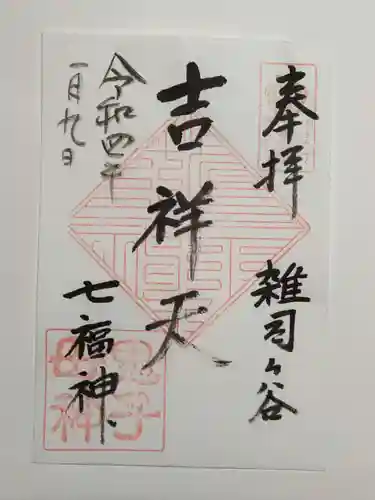 奉拝
雑司ヶ谷
吉祥天
七福神
令和四年
一月九日
鬼子
母神